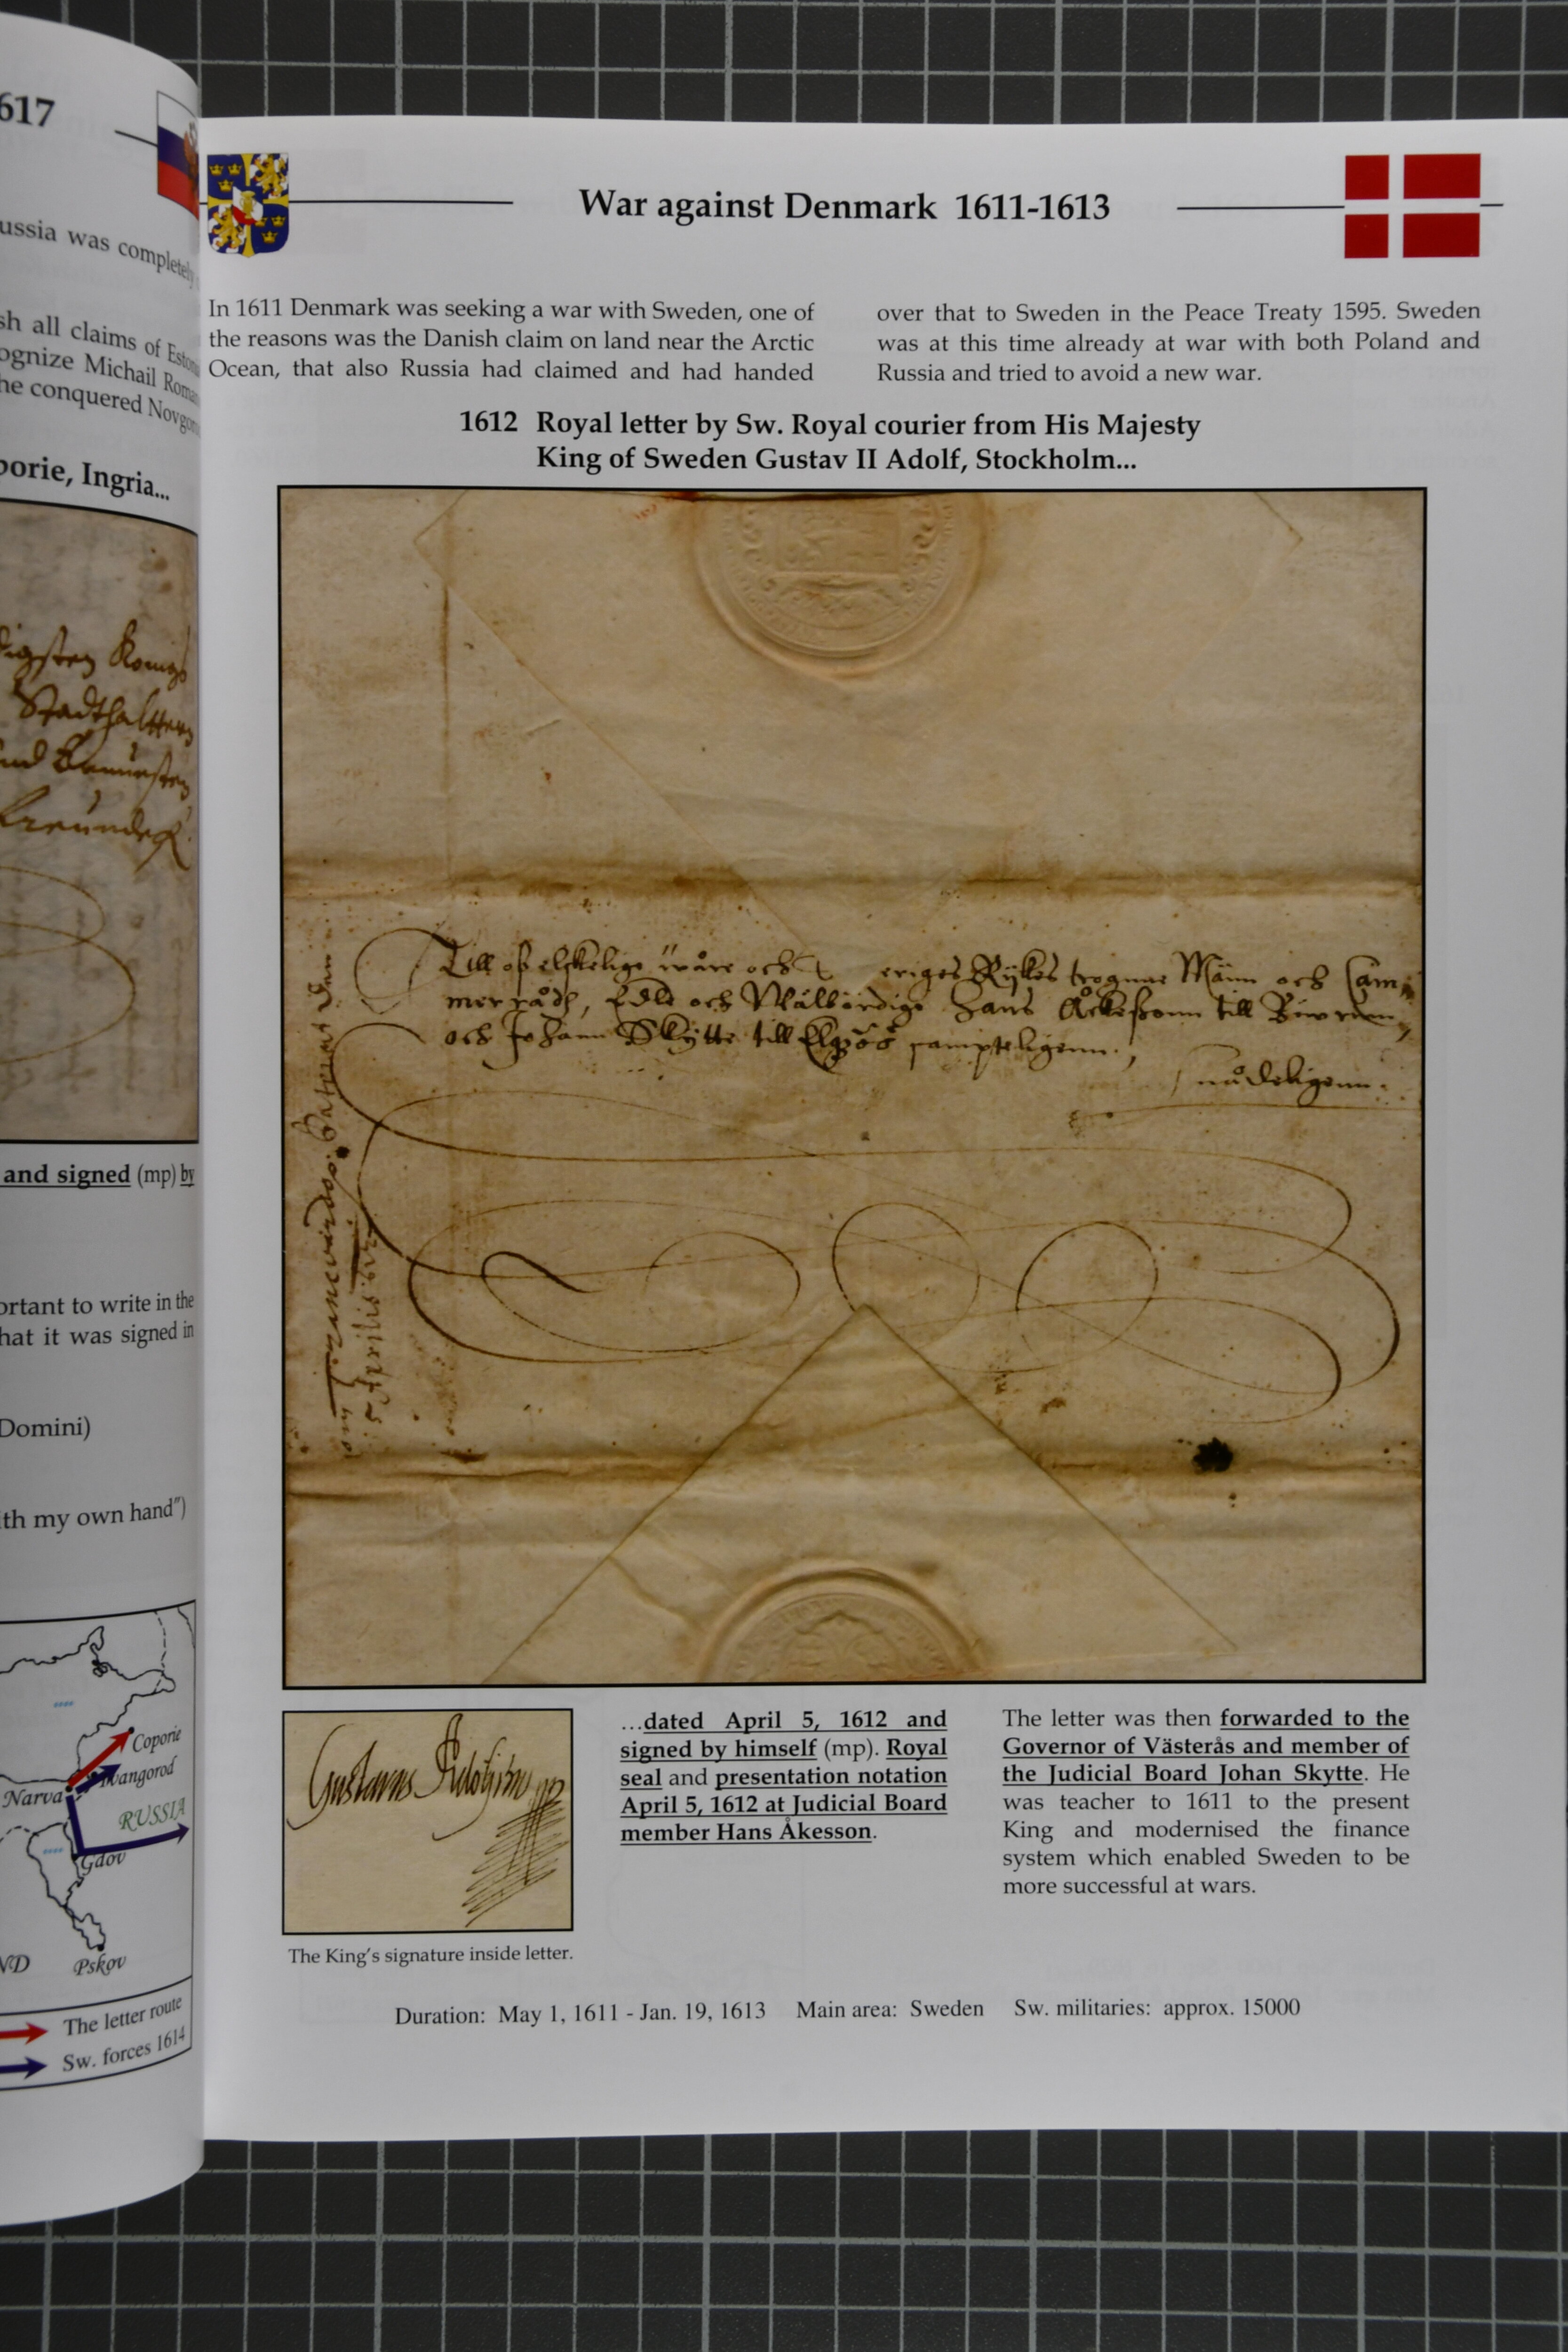 617
ussia was completely
sh all claims of
ognize Michail
he conquered
porie, Ingria...
digsten Konigs
Stadthalttern
and signed (mp) by
ortant to write in the
hat it was signed in
Domini)
ith my own hand")
Coporie
Iwangorod
Narva
RUSSIA
Gdov
ND
Pskov
The letter route
Sw. forces 1614
War against Denmark 1611-1613
In 1611 Denmark was seeking a war with Sweden, one of
the reasons was the Danish claim on land near the Arctic
Ocean, that also Russia had claimed and had handed
over that to Sweden in the Peace Treaty 1595. Sweden
was at this time already at war with both Poland and
Russia and tried to avoid a new war.
1612 Royal letter by Sw. Royal courier from His Majesty
King of Sweden Gustav II Adolf, Stockholm...
Till oß elskelige wåre och eriges Rykes trogne Männ och Cam
mer rådh, Edle och Wälbördige Hans Åckeßonn till
och Johann Skytte till sampteligenn.,
nådeligenn.
5 Aprilis
Gustavus Adolphus mp
The King's signature inside letter.
...dated April 5, 1612 and
signed by himself (mp). Royal
seal and presentation notation
April 5, 1612 at Judicial Board
member Hans Åkesson.
The letter was then forwarded to the
Governor of Västerås and member of
the Judicial Board Johan Skytte. He
was teacher to 1611 to the present
King and modernised the finance
system which enabled Sweden to be
more successful at wars.
Duration: May 1, 1611 - Jan. 19, 1613 Main area: Sweden Sw. militaries: approx. 15000